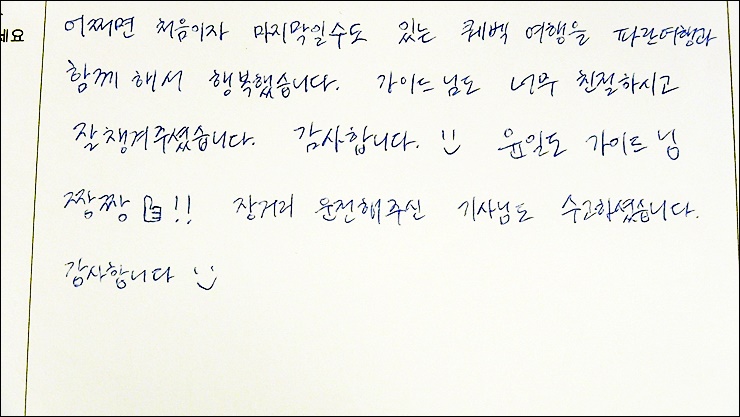 세요
어쩌면 처음이자 마지막일수도 있는 퀘벡 여행을 파란여행과
함께 해서 행복했습니다. 가이드님도 너무 친절하시고
잘 챙겨주셨습니다. 감사합니다. 윤일도 가이드님
짱짱 !! 장거리 운전해주신 기사님도 수고하셨습니다.
감사합니다